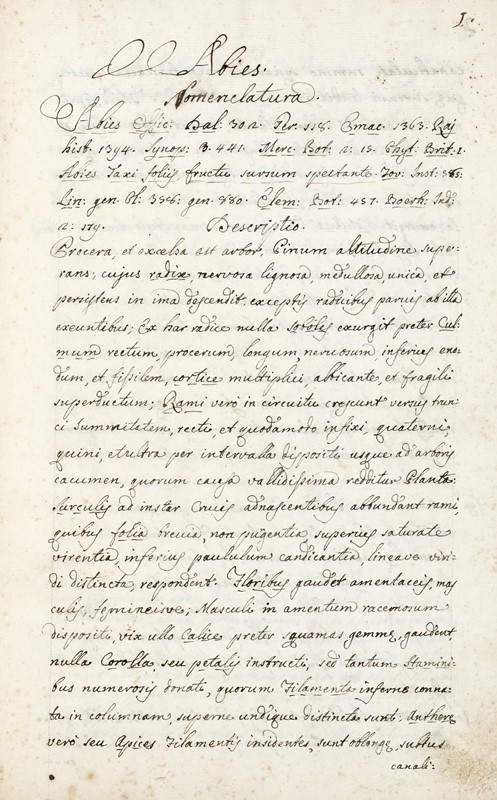 1.
Abies.
Nomenclatura.
Abies Offic: Dal: 30 2. Per. 118. Emac. 1363. Raj
hist. 1394. Synops: 3. 441. Merc. Bot. 2: 15. Phyt: Brit: 1.
Abies Taxi folijs fructu sursum spectante. Tor: Inst: 585:
Lin: gen: Pl: 356: gen: 880. Elem: Bot: 457. Boerh: Ind:
2: 179. Descriptio.
Procera, et excelsa est arbor, Pinum altitudine supe-
rans; cujus radix, nervosa lignosa, medullosa, unica, et
persistens in ima descendit, exceptis radicibus parvis ab illa
exeuntibus; Ex hac radice nulla soboles exurgit preter Cul-
mum rectum, procerum, longum nervosum, inferius eno-
dum, et fissilem, cortice multiplici, albicante, et fragili
superductum; Rami vero in circuitu crescunt versus trun-
ci summitetem, recte, et quodamodo infixi, quaterni,
quini, et ultra per intervalla dispositi usque ad arboris
cacumen, quorum causa vallidissima redditur Planta.
Surculis ad instar Crucis adnascentibus abbundant rami,
quibus folia brevia, non pugentia, superius saturate
virentia, inferius paululum candicantia, lineave viri-
di distincta, respondent. Floribus gaudet amentaceis, mas
culis, femineisve; Masculi in amentum racemosum
dispositi, vix ullo Calice preter squamas gemme, gaudent,
nulla Corolla, seu petalis instructi, sed tantum Stamini-
bus numerosis donati, quorum Filamenta inferne conna-
ta in columnam, superne undique distincta sunt: Anthere
vero seu Apices Filamentis insidentes, sunt oblonge, subtus
canali: